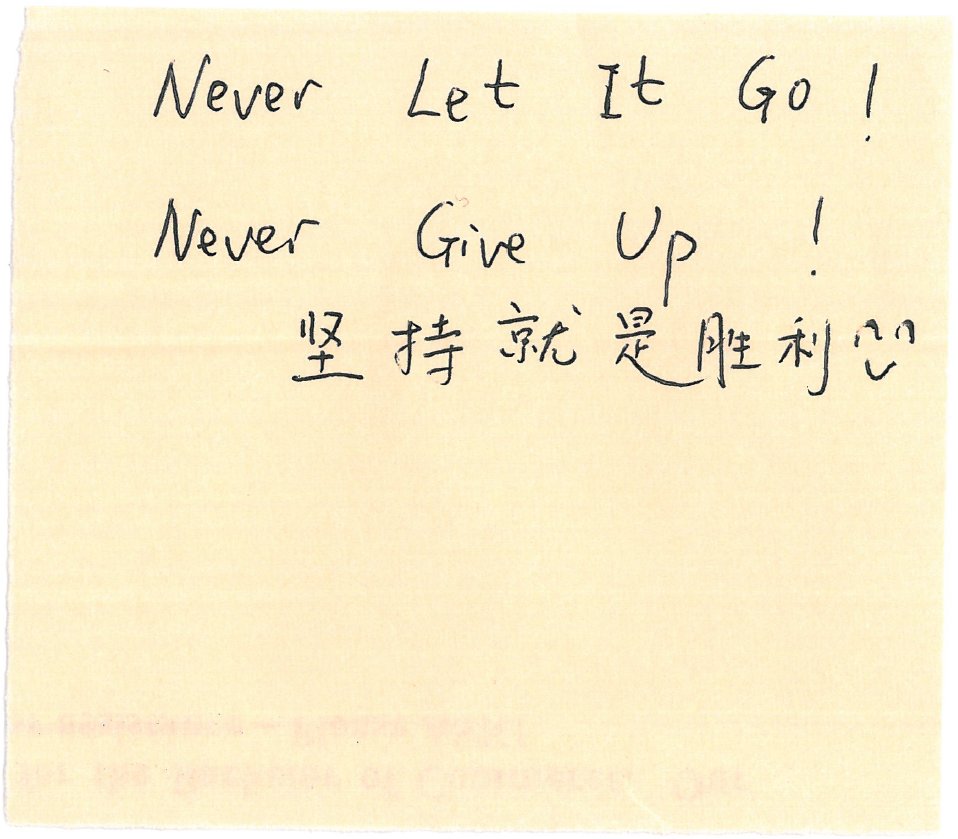 Never Let It Go!
Never Give Up!
坚持就是胜利